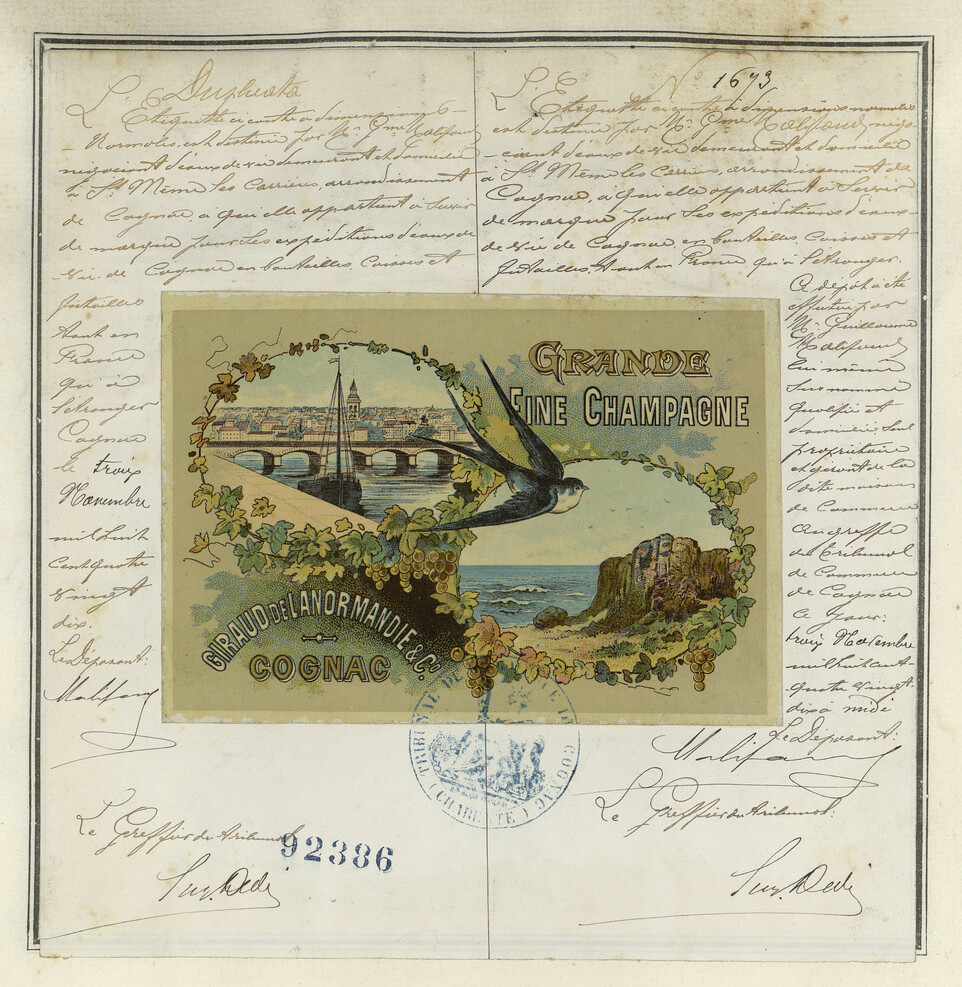 Duplicata
L'Etiquette ci contre à dimensions
Normales est destinée par Mr Gme Malifaud
négociant d'eaux de vie demeurant et domicilié
à St Même les Carrières, arrondissement
de Cognac, à qui elle appartient à servir
de marque pour ses expéditions d'eaux de
vie de Cognac en bouteilles, Caisses et
futailles
tant en
France
qu'à
l'étranger
Cognac
le trois
Novembre
mil huit
cent quatre
vingt
dix.
Le Déposant:
Malifaud
Le Greffier du tribunal
92386
No 1673
L'Etiquette ci contre à dimensions normales
est destinée par Mr Gme Malifaud négo-
-ciant d'eaux de vie demeurant et domicilié
à St Même les Carrières, arrondissement de
Cognac, à qui elle appartient à servir
de marque pour ses expéditions d'eaux-
de vie de Cognac, en bouteilles, Caisses et
futailles, tant en France qu'à l'étranger.
Ce dépôt a été
effectué par
Mr Guillaume
Malifaud
lui même
susnommé
qualifié et
domicilié, seul
propriétaire
et gérant de la
dite maison
de Commerce
au greffe
du tribunal
de Commerce
de Cognac
ce jour:
trois Novembre
mil huit cent-
quatre vingt-
dix à midi
Le Déposant:
Malifaud
Le Greffier du tribunal:
GRANDE
FINE CHAMPAGNE
GIRAUD DE LANORMANDIE & Co.
COGNAC
TRIBUNAL DE COMMERCE DE COGNAC
(CHARENTE)